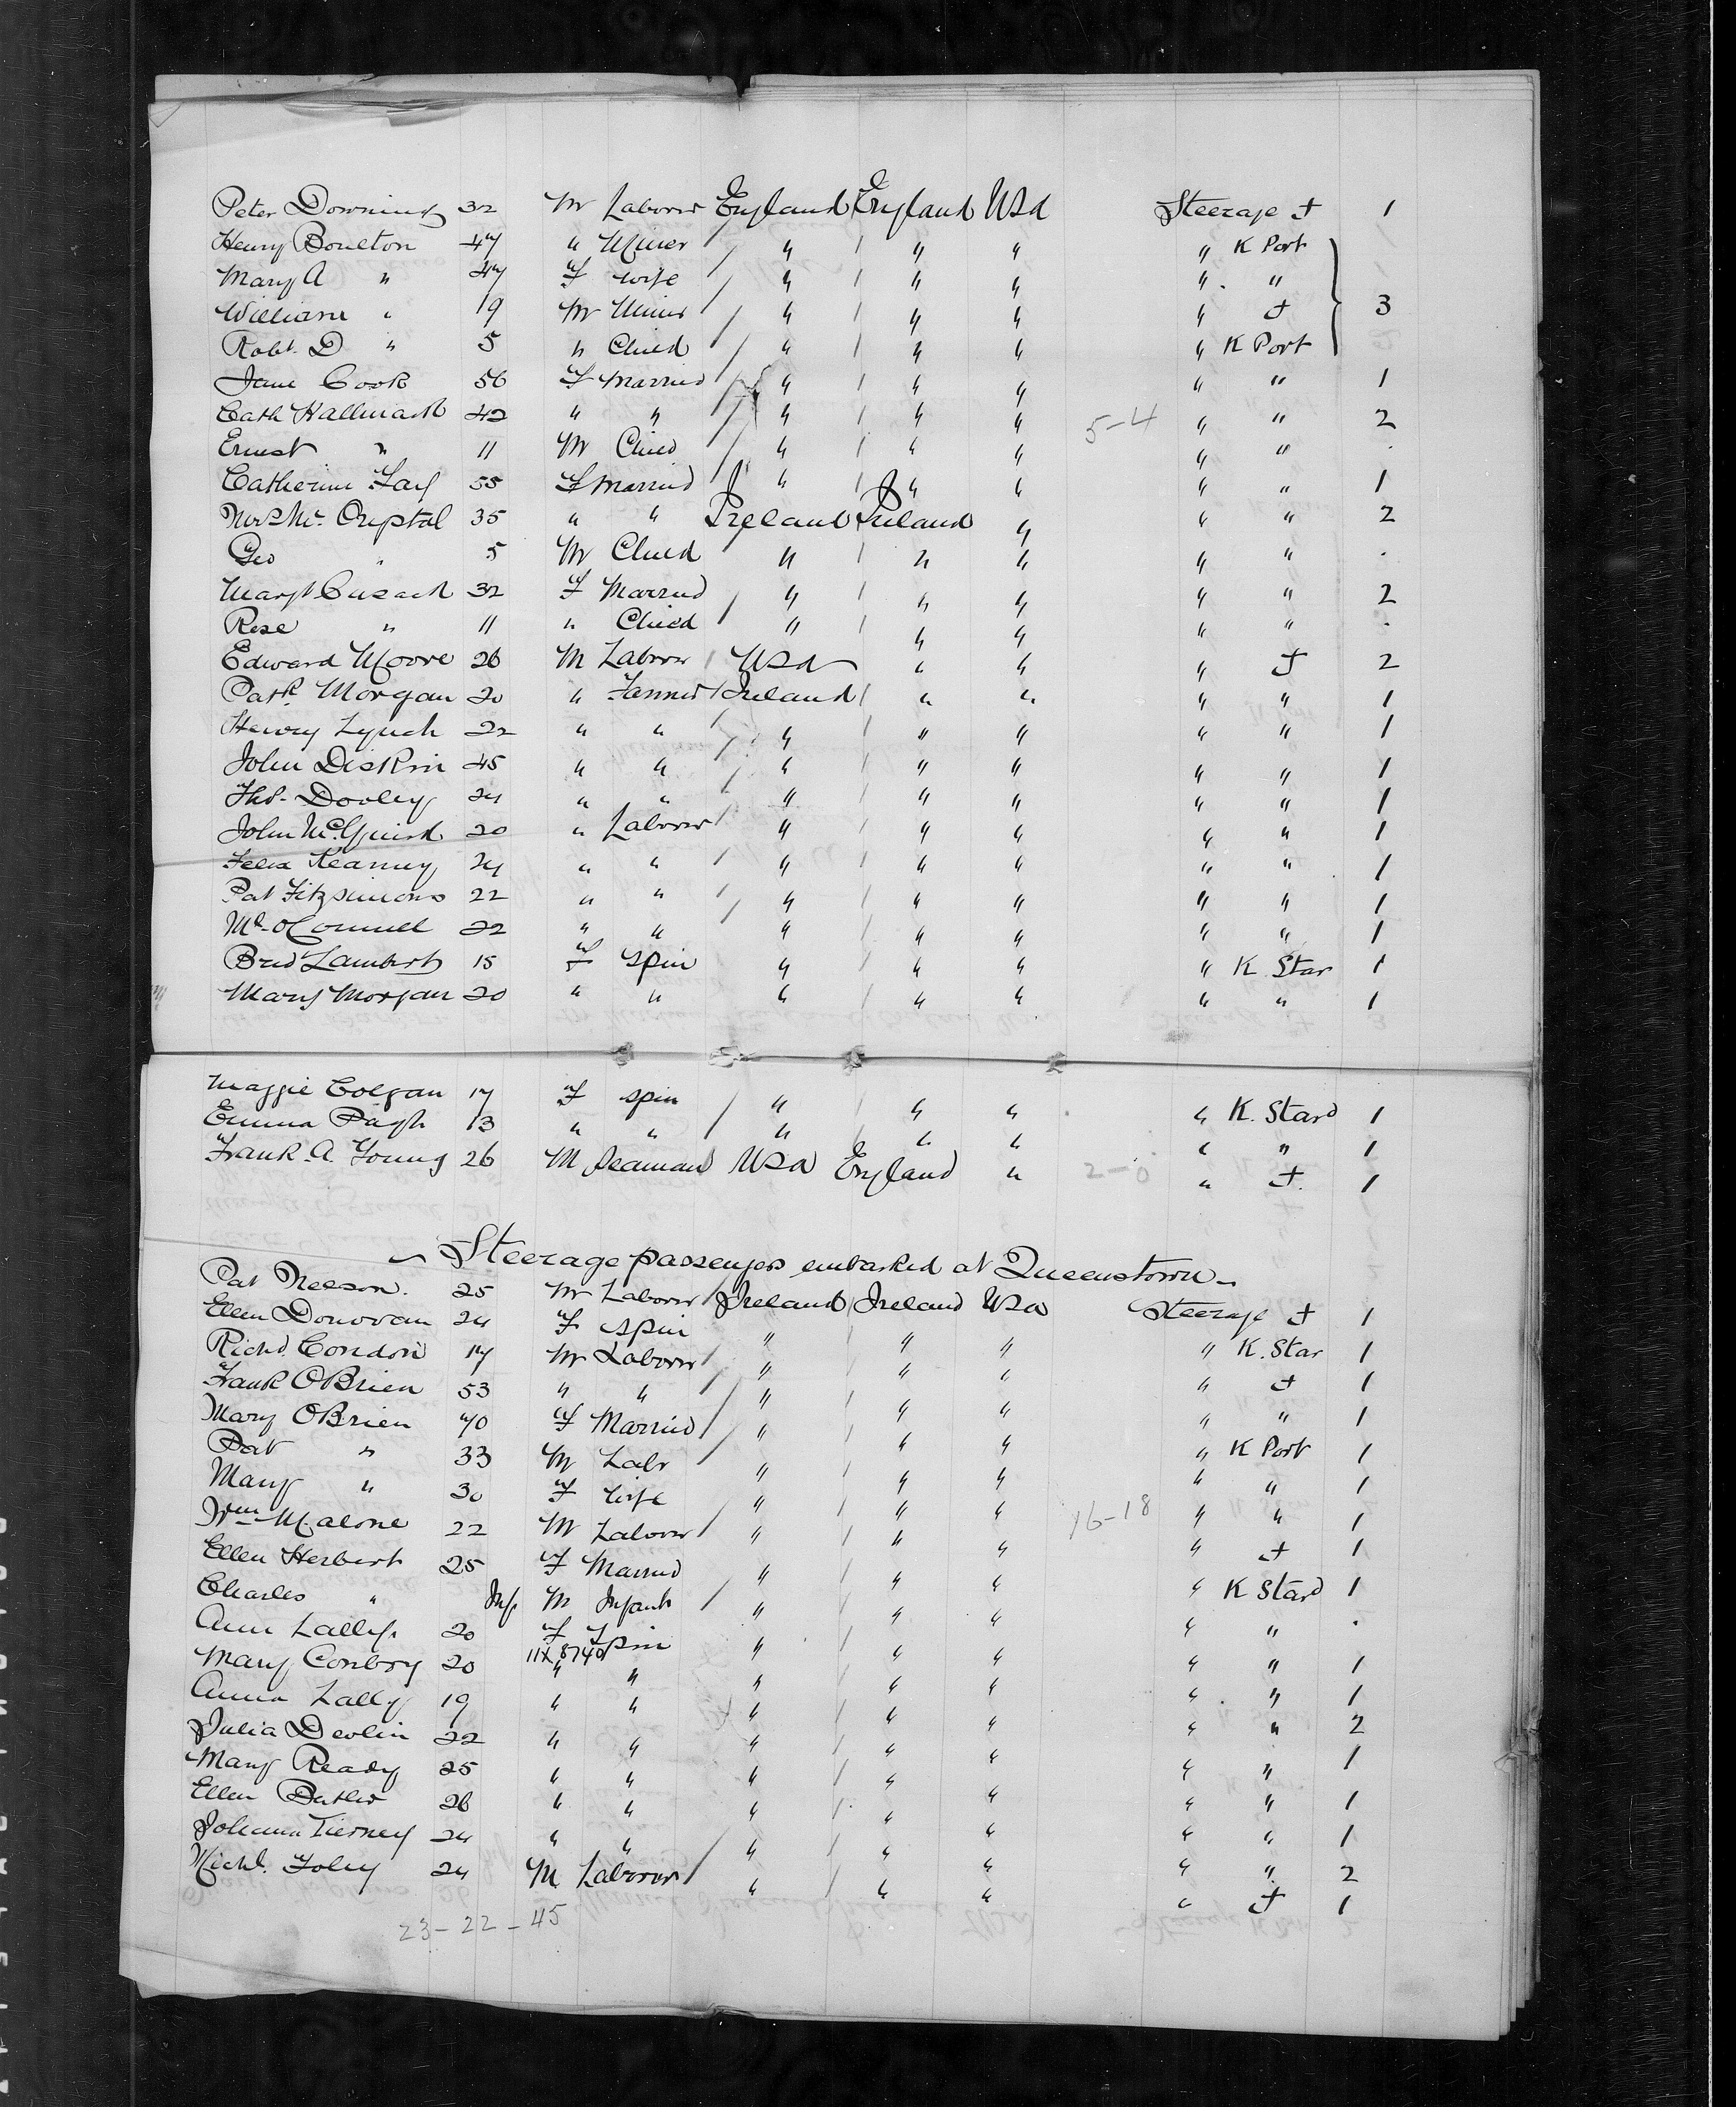 Peter Downing 32 M Laborer England England USA Steerage J 1
Henry Boulton 47 " Miner " " " " K Port
Mary A " 47 F wife " " " " "
William " 19 M Miner " " " " J 3
Robt. D " 5 " Child " " " " K Port
Jane Cook 56 F Married " " " " " 1
Cath Hallmark 42 " " " " " 5-4 " " 2
Ernest " 11 M Child " " " " " .
Catherine 55 F Married " " " " " 1
Mrs Mc. Crystal 35 " " Ireland Ireland " " " 2
Geo " 5 M Child " " " " " .
Margt Cusack 32 F Married " " " " " 2
Rose " 11 " Child " " " " " .
Edward Moore 26 M Laborer USA " " " J 2
Patk. Morgan 20 " Farmer Ireland " " " " 1
Henry Lynch 22 " " " " " " " 1
John Diskin 45 " " " " " " " 1
Thos. Dooley 24 " " " " " " " 1
John McGuirk 20 " Laborer " " " " " 1
Felix Kearney 24 " " " " " " " 1
Pat Fitzsimons 22 " " " " " " " 1
Ml. O'Connell 22 " " " " " " " 1
Brid Lambert 15 F Spin " " " " K Star 1
Mary Morgan 20 " " " " " " " 1
Maggie Colgan 17 F spin " " " " K. Stard 1
Emma 13 " " " " " " " 1
Frank. A. Young 26 M Seaman USA England " 2-0 " J. 1
Steerage passengers embarked at Queenstown
Pat Neeson. 25 M Laborer Ireland Ireland USA Steerage J 1
Ellen Donovan 24 F Spin " " " " K. Star 1
Richd. Condon 17 M Laborer " " " " J 1
Frank O'Brien 53 " " " " " " " 1
Mary O'Brien 70 F Married " " " " K Port 1
Pat " 33 M Labr " " " " " 1
Mary " 30 F wife " " " 16-18 " " 1
Wm Malone 22 M Laborer " " " " J 1
Ellen Herbert 25 F Married " " " " K Stard 1
Charles " Inf. M Infant " " " " " .
Ann Lally. 20 F Spin " " " " " 1
11X8740
Mary Conbry 20 " " " " " " " 1
Anna Lally 19 " " " " " " " 2
Julia Devlin 22 " " " " " " " 1
Mary Ready 25 " " " " " " " 1
Ellen Butler 26 " " " " " " " 1
Johanna Tierney 24 " " " " " " " 2
Michl. Foley 24 M Laborer " " " " J 1
23-22-45